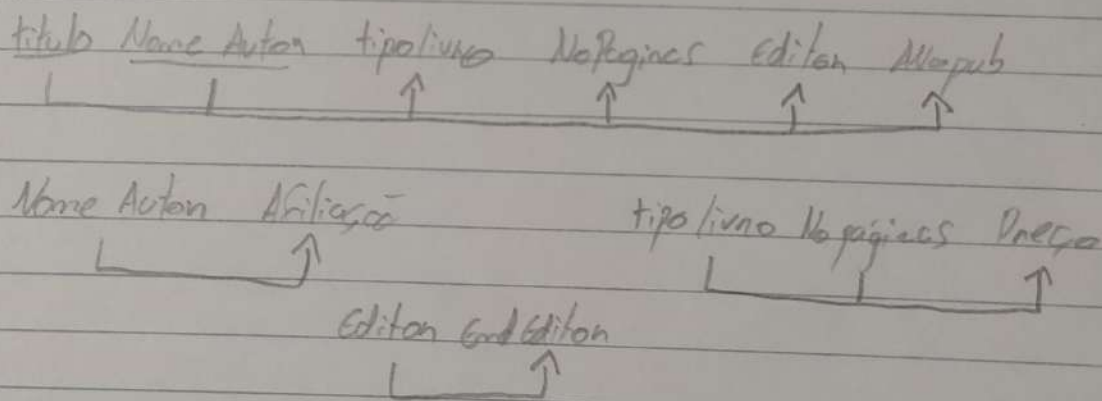 titulo Nome Autor tipolivro NoPaginas Editor Anopub
Nome Autor Afiliação tipolivro No páginas Preço
Editor End Editor